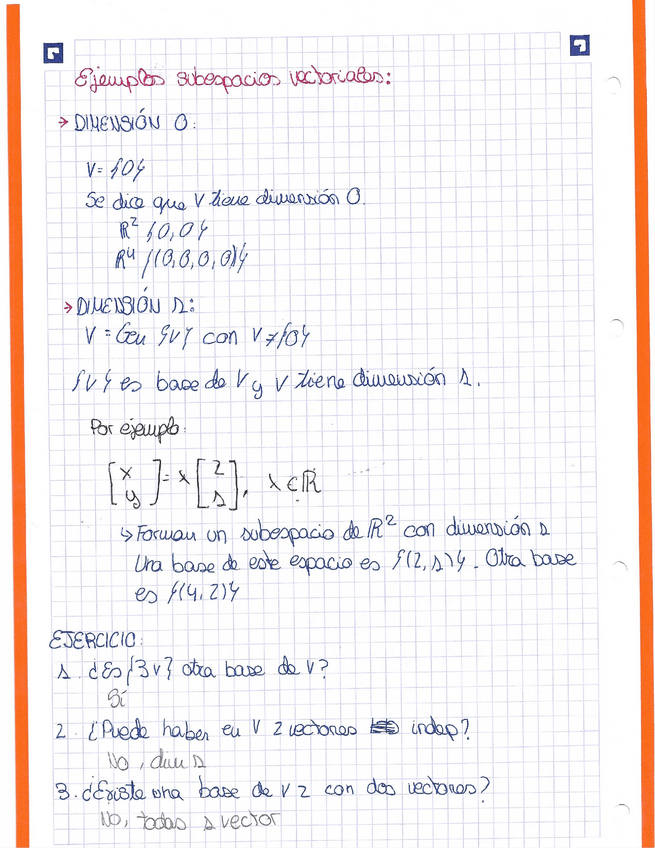 Ejemplos subespacios vectoriales:
→ DIMENSIÓN 0:
V = {0}
Se dice que V tiene dimensión 0.
R² {0,0}
R⁴ {(0,0,0,0)}
→ DIMENSIÓN 1:
V = Gen {v} con V ≠ {0}
{v} es base de V y V tiene dimensión 1.
Por ejemplo:
[x y] = x [2 1], x ∈ ℝ
↳ Forman un subespacio de R² con dimensión 1
Una base de este espacio es {(2,1)}. Otra base
es {(4,2)}
EJERCICIO:
1. ¿Es {3v} otra base de V?
Sí
2. ¿Puede haber en V 2 vectores indep?
No, dim 1
3. ¿Existe una base de V 2 con dos vectores?
No, todas 1 vector